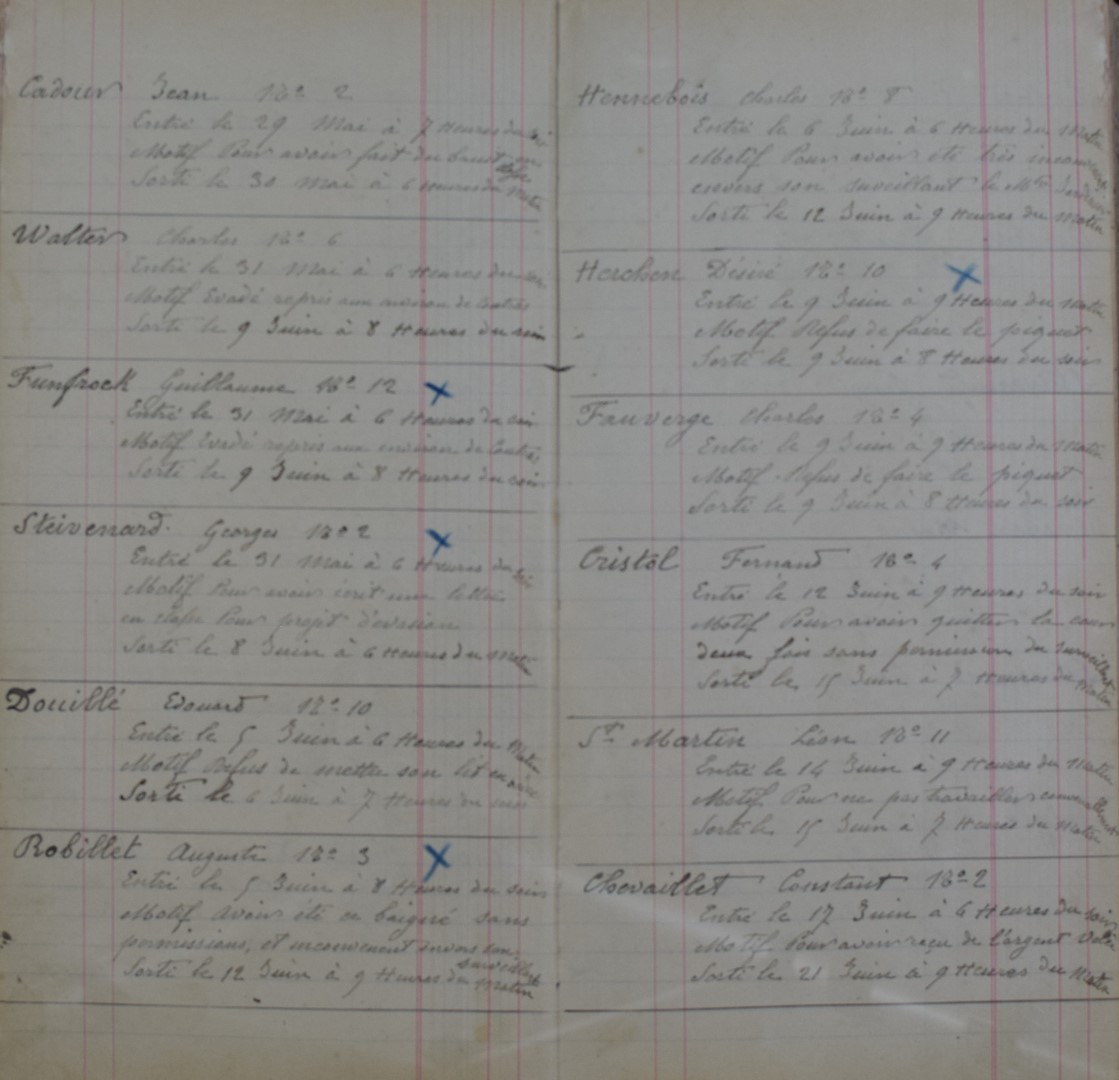 Cadour Jean 18e 2
Entré le 29 Mai à 7 Heures du soir
Motif Pour avoir fait du bruit en
Sorti le 30 Mai à 6 Heures du matin
Walter Charles 18e 6
Entré le 31 Mai à 6 Heures du soir
Motif Evadé repris aux environ de Contres
Sorti le 9 Juin à 8 Heures du soir
Funfrock Guillaume 18e 12
Entré le 31 Mai à 6 Heures du soir
Motif Evadé repris aux environ de Contres
Sorti le 9 Juin à 8 Heures du soir
Steivenard Georges 18e 2
Entré le 31 Mai à 6 Heures du soir
Motif Pour avoir écrit une lettre
en Pour projet d'évasion
Sorti le 8 Juin à 6 Heures du matin
Douillé Edouard 18e 10
Entré le 5 Juin à 6 Heures du Matin
Motif Refus de mettre son lit en
Sorti le 6 Juin à 7 Heures du soir
Robillet Auguste 18e 3
Entré le 5 Juin à 8 Heures du soir
Motif avoir été ce baigné sans
permissions, et inconvenent envers son
surveillant
Sorti le 12 Juin à 9 Heures du matin
Hennebois Charles 18e 8
Entré le 6 Juin à 6 Heures du Matin
Motif Pour avoir été très inconvenent
envers son suveillant le
Sorti le 12 Juin à 9 Heures du matin
Herchon Désiré 18e 10
Entré le 9 Juin à 9 Heures du matin
Motif Refus de faire le piquet
Sorti le 9 Juin à 8 Heures du soir
Fauverge Charles 18e 4
Entré le 9 Juin à 9 Heures du matin
Motif Refus de faire le piquet
Sorti le 9 Juin à 8 Heures du soir
Cristol Fernand 18e 4
Entré le 12 Juin à 9 Heures du soir
Motif Pour avoir quitter la cour
deux fois sans permission du surveillant
Sorti le 15 Juin à 7 Heures du matin
St Martin Léon 18e 11
Entré le 14 Juin à 9 Heures du Matin
Motif Pour ne pas travailler
Sorti le 15 Juin à 7 Heures du Matin
Chevaillet Constant 18e 2
Entré le 17 Juin à 6 Heures du soir
Motif Pour avoir reçu de l'argent
Sorti le 21 Juin à 9 Heures du Matin